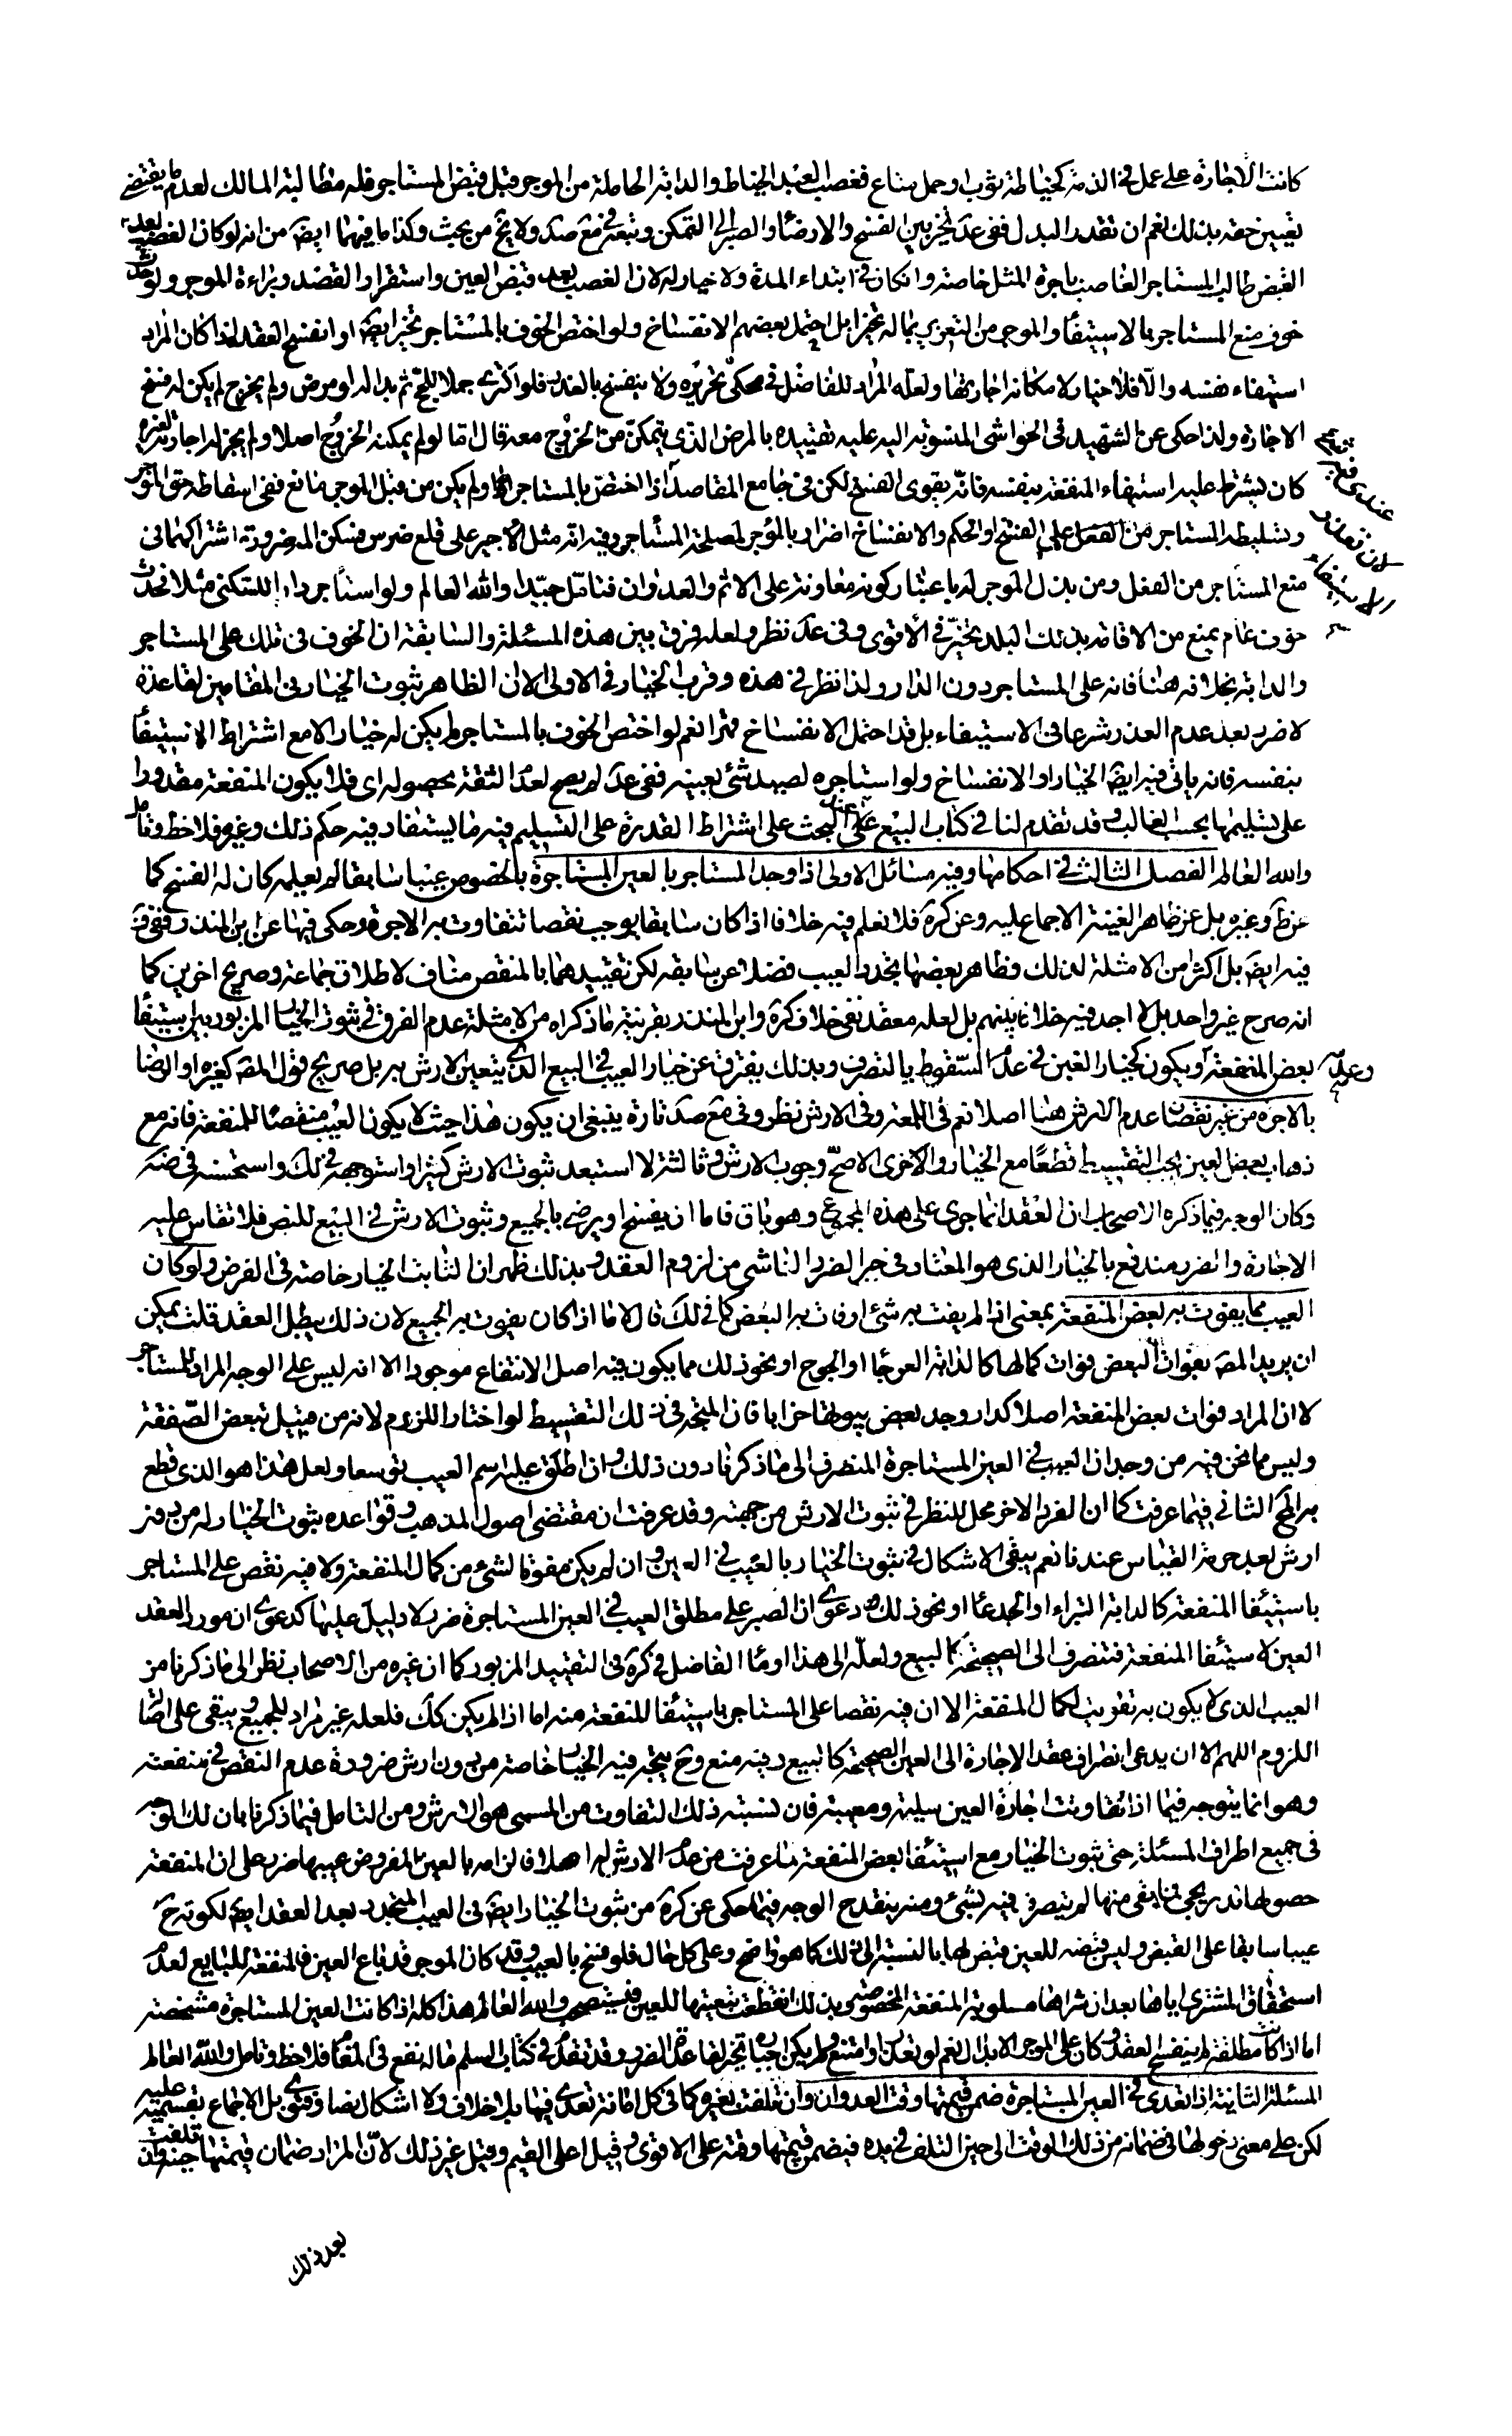 كانت الاجارة على عمل في الذمة كخياطة ثوب او حمل متاع فغصب العبد الخياط والدابة الحاملة من الموجر قبل قبض المستاجر فله مطالبة المالك لعدم ما يقتضى
تعيين حقه بذلك نعم ان تعذر البدل ففى عد تخير بين الفسخ والارضاء والصبر الى التمكن وتبعه في مع صد ولا يخ من بحث وكذا ما فيهما ايضا من انه لو كان الغصب بعد
القبض طالب المستاجر الغاصب باجرة المثل خاصة وان كان في ابتداء المدة ولا خيار له لان الغصب بعد قبض العين واستقرار القصد وبراءة الموجر ولو حدث
خوف منع المستاجر بالاستيفاء والموجر من التعزير بماله تخيرا بل احتمل بعضهم الانفساخ ولو اختص الخوف بالمستاجر تخير ايضا او انفسخ العقد اذا كان المراد
استيفاءه بنفسه والا فلا خيار لامكان اجارتها ولعله المراد للفاضل في محكى تحريره ولا ينفسخ بالعذر فلو اكترى جملا للحج ثم بدا له او مرض ولم يخرج لم يكن له فسخ
الاجارة ولذا حكى عن الشهيد فى الحواشى المنسوبة اليه عليه تقييده بالمرض الذى يتمكن من الخروج معه قال اما لو لم يمكنه الخروج اصلا ولم يجز له اجارته لغيره
كان يشترط عليه استيفاء المنفعة بنفسه فانه يقوى الفسخ لكن فى جامع المقاصد اذا اختص بالمستاجر ولم يكن من قبل الموجر مانع ففى اسقاط حق الموجر
وتسليط المستاجر من الفعل على الفسخ او الحكم والانفساخ اضرار بالموجر لمصلحة المستاجر وفيه انه مثل الاجير على قلع ضرس فسكن المه ضرورة اشتراكهما فى
منع المستاجر من الفعل ومن بذل الموجر له باعتبار كونه معاونة على الاثم والعدوان فتامل جيدا والله العالم ولو استاجر دارا للسكنى مثلا فحدث
خوف عام يمنع من الاقامة بذلك البلد تخير في الاقوى وفى عد نظر ولعله فرق بين هذه المسئلة والسابقة ان الخوف فى تلك على المستاجر
والدابة بخلافه هنا فانه على المستاجر دون الدار ولذا نظر في هذه وقرب الخيار في الاولى الا ان الظاهر ثبوت الخيار فى المقامين لقاعدة
لا ضرر بعد عدم العذر شرعا فى الاستيفاء بل قد احتمل الانفساخ قهرا نعم لو اختص الخوف بالمستاجر لم يكن له خيار الا مع اشتراط الاستيفاء
بنفسه فانه ياتى فيه ايضا الخيار او الانفساخ ولو استاجره لصيد شئ بعينه ففى عد لم يصح لعدم الثقة بحصوله اى فلا يكون المنفعة مقدورا
على تسليمها بحسب الغالب وقد تقدم لنا في كتاب البيع عند البحث على اشتراط القدرة على التسليم فيه ما يستفاد فيه حكم ذلك وغيره فلاحظ وتامل
والله العالم الفصل الثالث في احكامها وفيه مسائل الاولى اذا وجد المستاجر بالعين المستاجرة بالخصوص عيبا سابقا لم يعلمه كان له الفسخ كما
عن ط وغيره بل عن ظاهر الغنية الاجماع عليه وعن كرة فلا نعلم فيه خلافا اذا كان سابقا يوجب نقصا تتفاوت به الاجرة وحكى فيها عن ابن المنذر نفى
فيه ايضا بل اكثر من الامثلة لذلك وظاهر بعضها تجدد العيب فضلا عن سابقه لكن تقييدهما بالمنقص مناف لاطلاق جماعة وصريح اخرين كما
انه صرح غير واحد بل لا اجد فيه خلافا بينهم بل لعله معقد نفى خلاف كرة وابن المنذر بقرينة ما ذكراه من الامثلة عدم الفرق في ثبوت الخيار المزبور بين استيفاء
بعض المنفعة وعدمه ويكون كخيار الغبن في عدم السقوط بالتصرف وبذلك يفترق عن خيار العيب في البيع الذى يتعين الارش به بل صريح قول المص كغيره او الرضا
بالاجرة من غير نقصان عدم الارش هنا اصلا نعم في اللمعة وفى الارش نظر وفى مع صد تارة ينبغى ان يكون هذا حيث لا يكون العيب منقصا للمنفعة فانه مع
ذهاب بعض العين يجب التقسيط قطعا مع الخيار والاخرى الاصح وجوب الارش وثالثة لا استبعد ثبوت الارش كثيرا واستوجهه في لك واستحسنه في ضه
وكان الوجه فيما ذكره الاصحاب ان العقد انما جرى على هذه المجموع وهو باق فاما ان يفسخ او يرضى بالجميع وثبوت الارش في البيع للنص فلا تقاس عليه
الاجارة والضرر مندفع بالخيار الذى هو المعتاد في جبر الضرر الناشى من لزوم العقد وبذلك ظهر ان الثابت الخيار خاصة فى الفرض ولو كان
العيب مما يفوت به بعض المنفعة بمعنى انه لم يفت به شئ او فات به البعض كما في لك قال لا ما اذا كان يفوت به الجميع لان ذلك يبطل العقد قلت يمكن
ان يريد المص بفوات البعض فوات كمالها كالدابة العرجاء او الجموح او نحو ذلك مما يكون فيه اصل الانتفاع موجودا الا انه ليس على الوجه المراد للمستاجر
لا ان المراد فوات بعض المنفعة اصلا كدار وجد بعض بيوتها خرابا فان المتجه فى ذلك التقسيط لو اختار اللزوم لانه من قبيل تبعض الصفقة
وليس مما نحن فيه من وجدان العيب في العين المستاجرة المنصرف الى ما ذكرنا دون ذلك وان اطلق عليه اسم العيب توسعا ولعل هذا هو الذى قطع
به المحقق الثانى فيما عرفت كما ان الفرد الاخر محل للنظر في ثبوت الارش من جهته وقد عرفت ان مقتضى اصول المذهب وقواعده ثبوت الخيار له من دون
ارش بعد حرمة القياس عندنا نعم يبقى الاشكال في ثبوت الخيار بالعيب في العين وان لم يكن مفوتا لشئ من كمال المنفعة ولا فيه نقص على المستاجر
باستيفاء المنفعة كالدابة البتراء او الجدعاء او نحو ذلك ودعوى ان الصبر على مطلق العيب في العين المستاجرة ضرر لا دليل عليها كدعوى ان مورد العقد
العين لاستيفاء المنفعة فتنصرف الى الصحيحة كالبيع ولعله الى هذا اومأ الفاضل في كرة فى التقييد المزبور كما ان غيره من الاصحاب نظر الى ما ذكرنا من
العيب الذى لا يكون به تفويت لكمال المنفعة الا ان فيه نقصا على المستاجر باستيفاء المنفعة منه اما اذا لم يكن كك فلعله غير مراد للجميع ويبقى على اصالة
اللزوم اللهم الا ان يدعى انصراف عقد الاجارة الى العين الصحيحة كالبيع وفيه منع وح يتجه فيه الخيار خاصة من دون ارش ضرورة عدم النقص في منفعته
وهو انما يتوجه فيما اذا تفاوتت اجارة العين سليمة ومعيبة فان نسبة ذلك التفاوت من المسمى هو الارش ومن التامل فيما ذكرنا بان لك الوجه
فى جميع اطراف المسئلة حتى ثبوت الخيار مع استيفاء بعض المنفعة ما عرفت من عدم الارش له اصلا فالزامه بالعين المفروض عيبها ضرر على ان المنفعة
حصولها تدريجى فما يبقى منها لم يتصرف فيه بشئ ومنه ينقدح الوجه فيما حكى عن كرة من ثبوت الخيار ايضا فى العيب المتجدد بعد العقد ايضا لكونه ح
عيبا سابقا على القبض وليس قبضه للعين قبض لها بالنسبة الى ذلك كما هو واضح وعلى كل حال فلو فسخ بالعيب وقد كان الموجر قد باع العين فالمنفعة للبايع لعدم
استحقاق المشترى اياها بعد ان شراها مسلوبة المنفعة المخصوصة وبذلك انقطعت تبعيتها للعين فيستصحب والله العالم هذا كله اذا كانت العين المستاجرة مشخصة
اما اذا كانت مطلقة لم ينفسخ العقد وكان على الموجر الابدال نعم لو تعذر او امتنع ولم يكن اجباره تخير لقاعدة الضرر وقد تقدم في كتاب السلم ما له نفع فى المقام فلاحظ وتامل والله العالم
المسئلة الثانية اذا تعدى في العين المستاجرة ضمن قيمتها وقت العدوان وان تلفت بغيره كما فى كل امانة تعدى فيها بلا خلاف ولا اشكال نصا وفتوى بل الاجماع بقسميه عليه
لكن على معنى دخولها في ضمانه من ذلك الوقت الى حين التلف في يده فيضمن قيمتها وقته على الاقوى وقيل اعلى القيم وقيل غير ذلك لان المراد ضمان قيمتها حينه وان تلفت
بعد ذلك